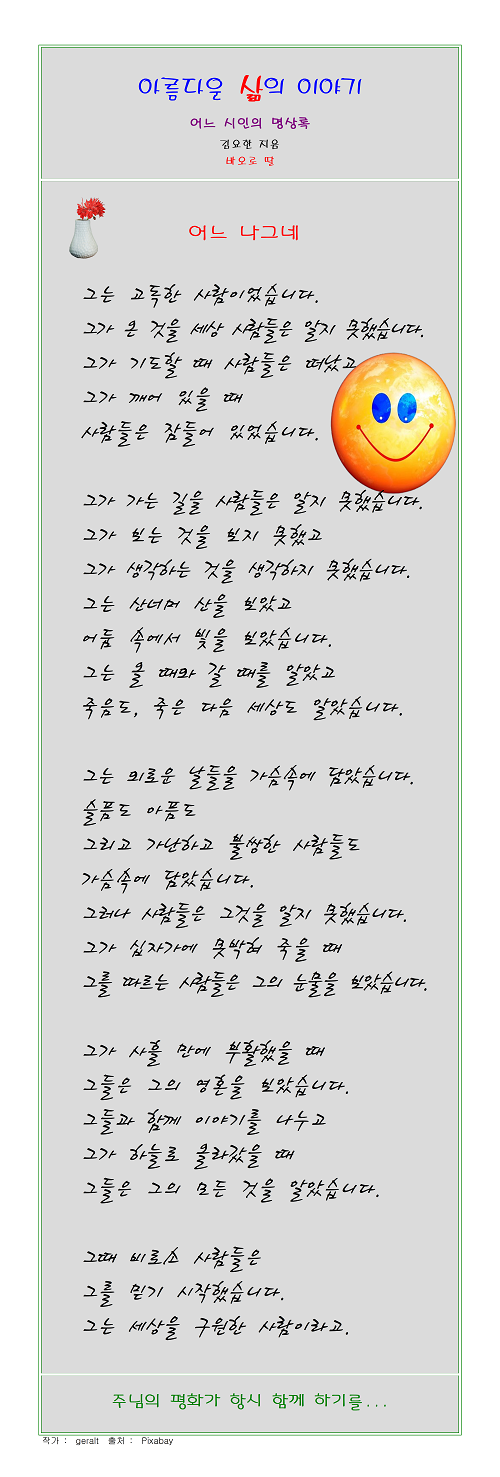 아름다운 삶의 이야기
어느 시인의 명상록
김요한 지음
바오로 딸
어느 나그네
그는 고독한 사람이었습니다.
그가 온 것을 세상 사람들은 알지 못했습니다.
그가 기도할 때 사람들은 떠났고
그가 깨어 있을 때
사람들은 잠들어 있었습니다.
그가 가는 길을 사람들은 알지 못했습니다.
그가 보는 것을 보지 못했고
그가 생각하는 것을 생각하지 못했습니다.
그는 산너머 산을 보았고
어둠 속에서 빛을 보았습니다.
그는 올 때와 갈 때를 알았고
죽음도, 죽은 다음 세상도 알았습니다.
그는 외로운 날들을 가슴속에 담았습니다.
슬픔도 아픔도
그리고 가난하고 불쌍한 사람들도
가슴속에 담았습니다.
그러나 사람들은 그것을 알지 못했습니다.
그가 십자가에 못박혀 죽을 때
그를 따르는 사람들은 그의 눈물을 보았습니다.
그가 사흘 만에 부활했을 때
그들은 그의 영혼을 보았습니다.
그들과 함께 이야기를 나누고
그가 하늘로 올라갔을 때
그들은 그의 모든 것을 알았습니다.
그때 비로소 사람들은
그를 믿기 시작했습니다.
그는 세상을 구원한 사람이라고.
주님의 평화가 항시 함께 하기를...
작가 : geralt 출처 : Pixabay